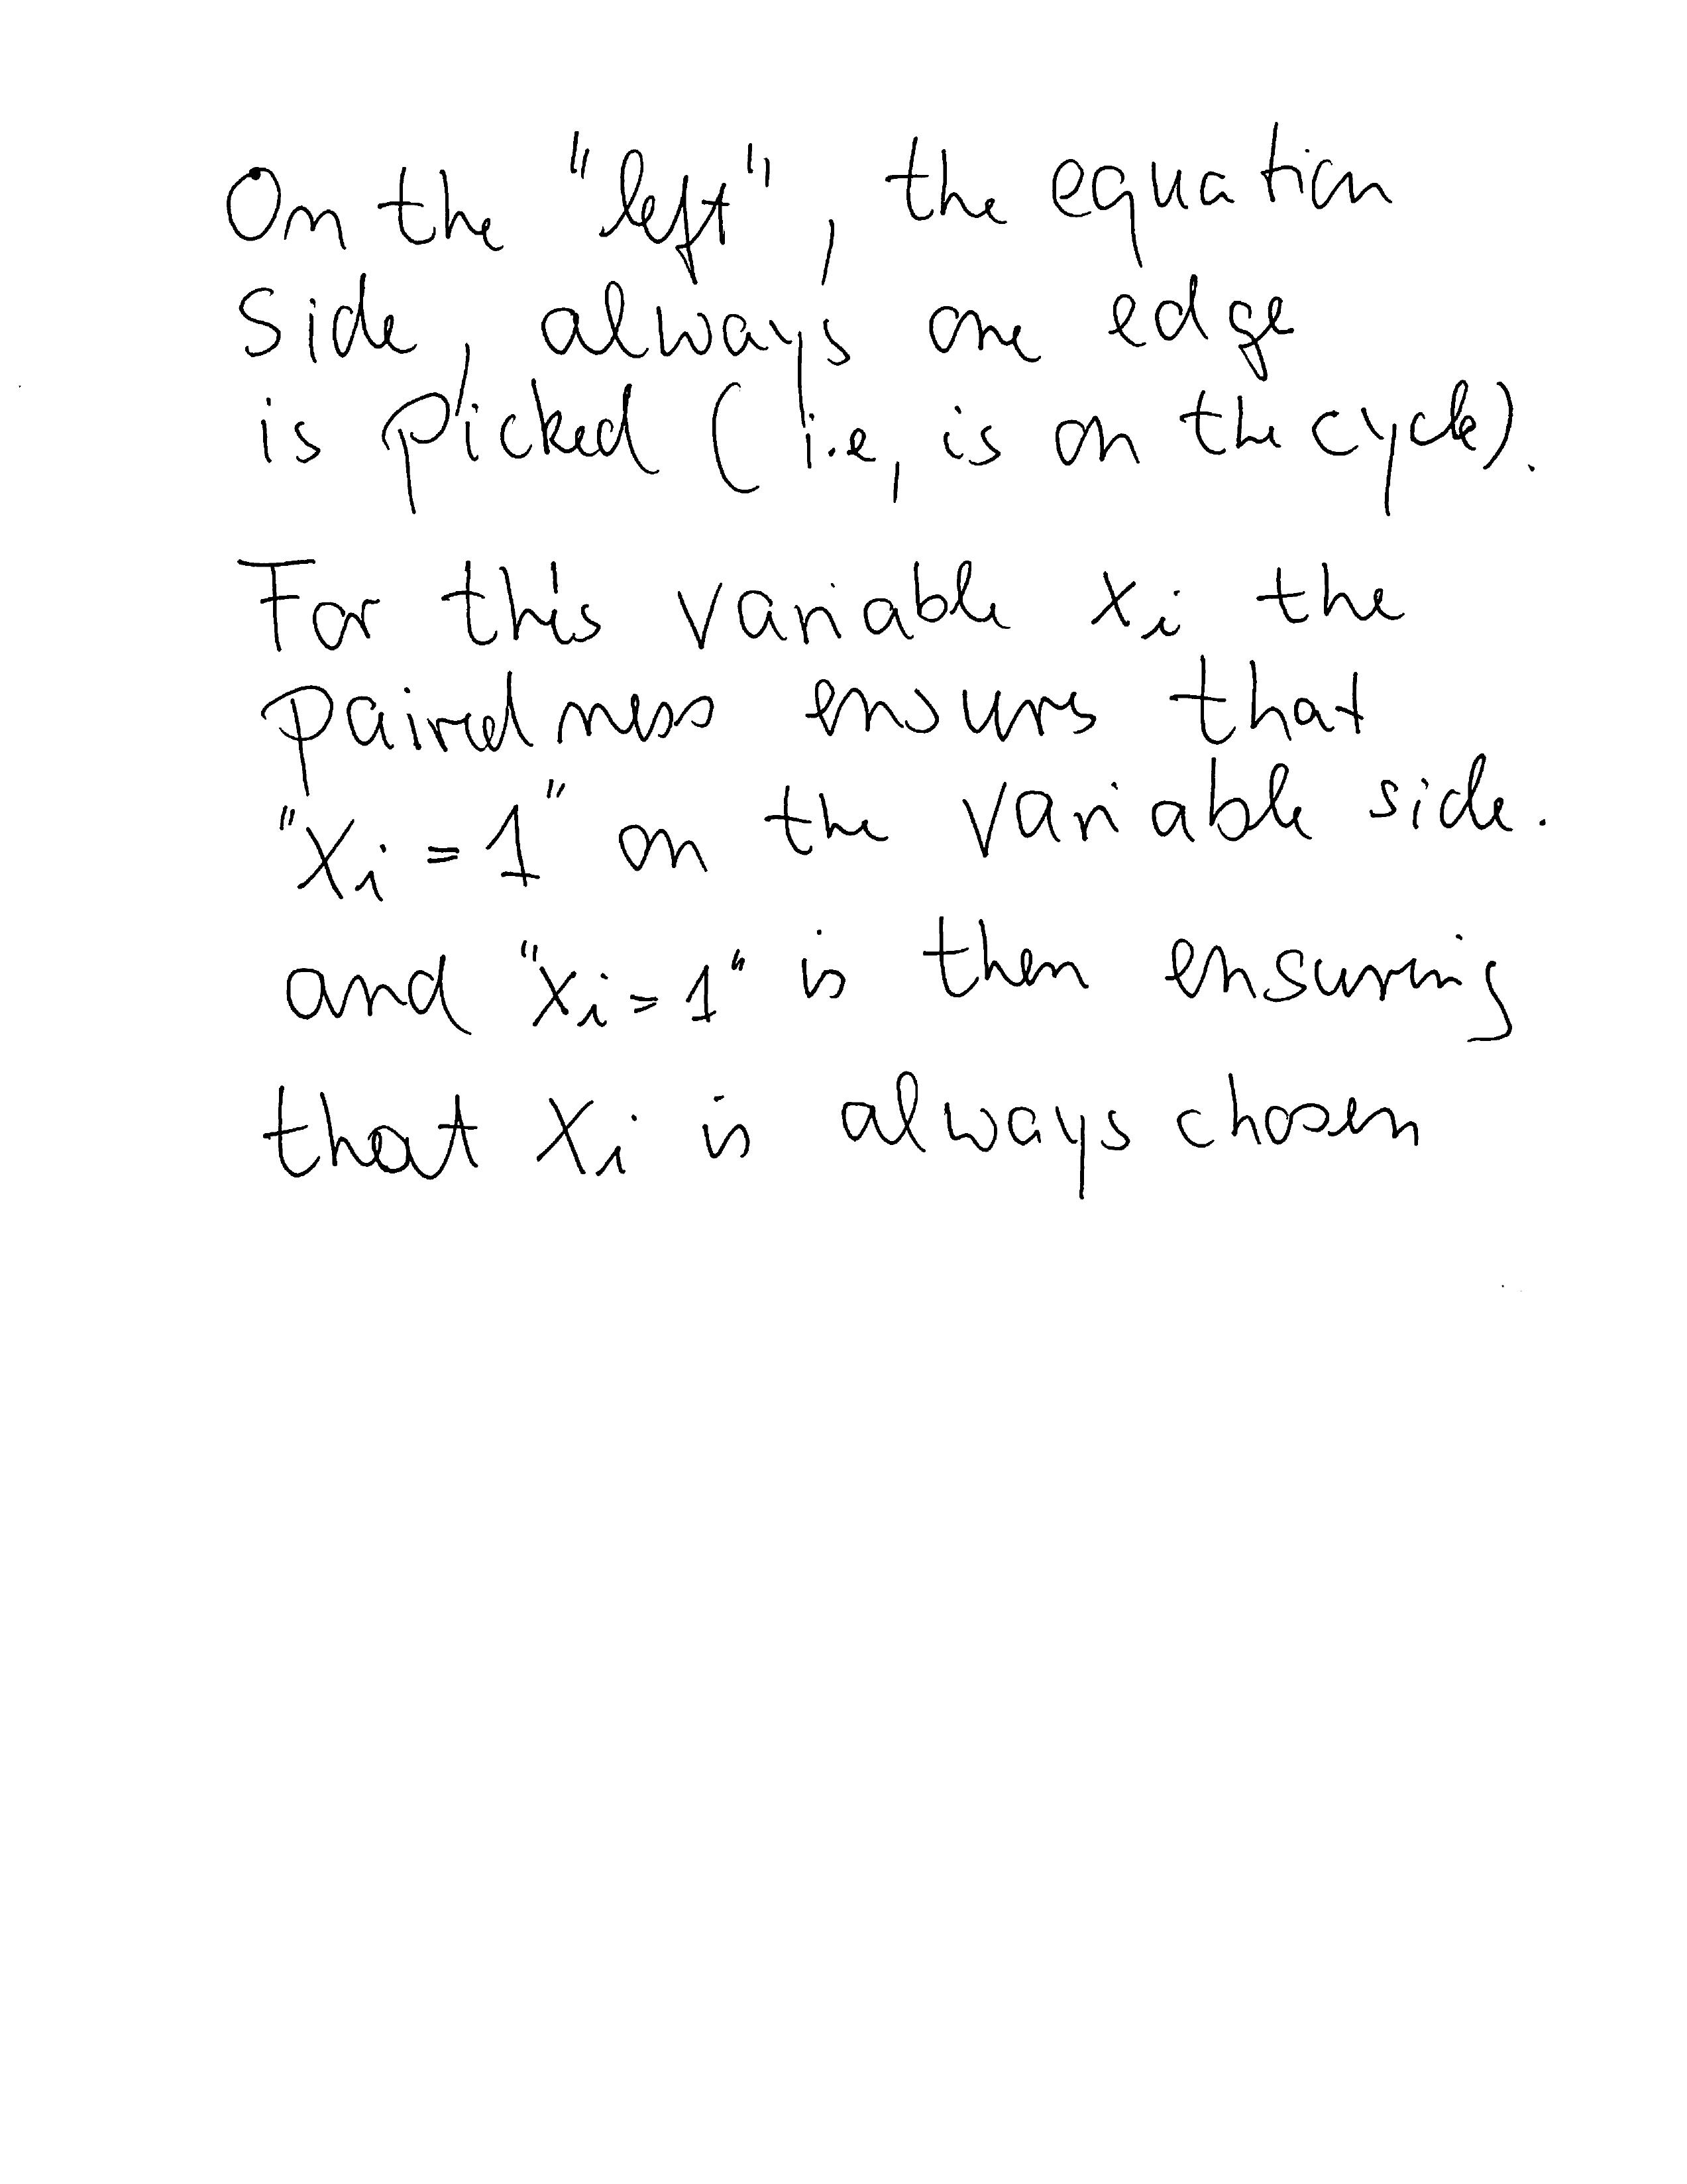 On the "left", the equation
side, always one edge
is picked (i.e, is on the cycle).
For this variable xi the
pairedness ensures that
"xi = 1" on the variable side.
and "xi = 1" is then ensuring
that xi is always chosen